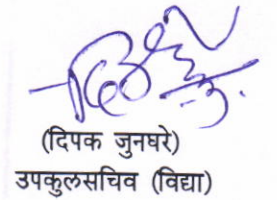 (दिपक जुनघरे)
उपकुलसचिव (विद्या)